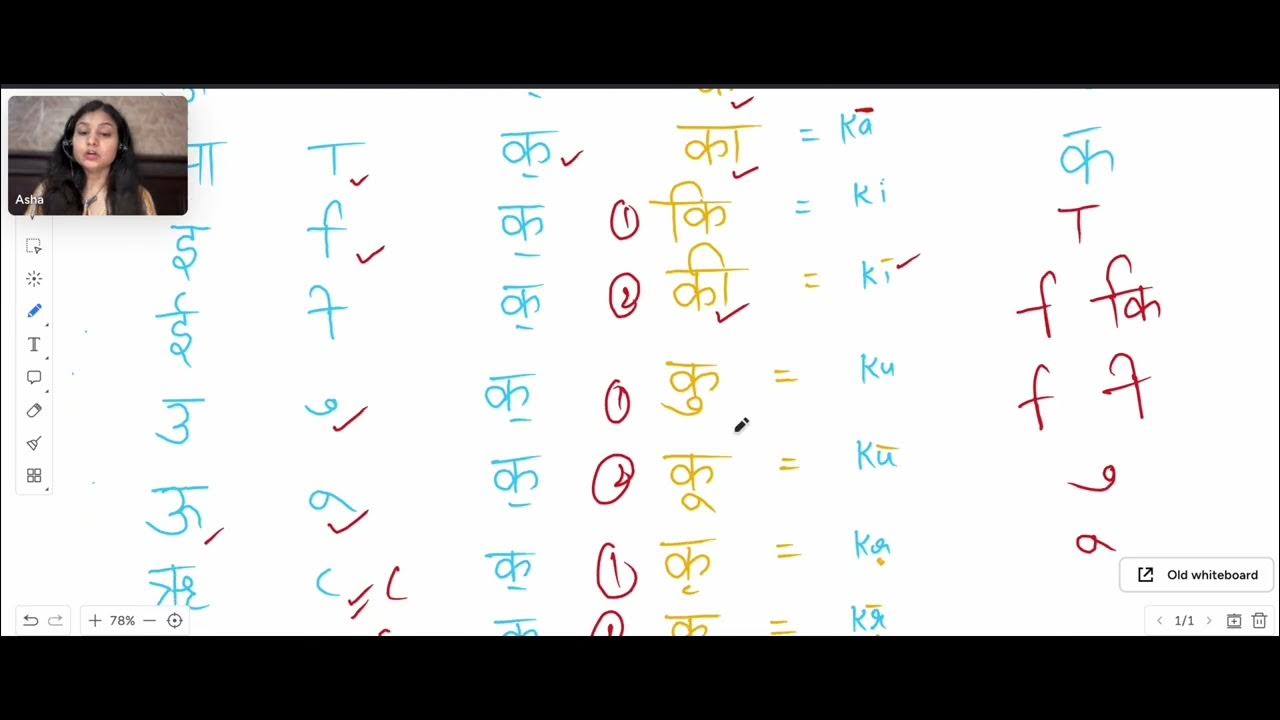 Asha
ा क का = kā क
इ ि क ① कि = ki ा
ई ी क ② की = kī ि कि
ि ी
उ ु क ① कु = ku
ऊ ू क ② कू = kū ु
ू
ऋ ृ ृ क ① कृ = kṛ
क = kṝ
T
78%
1/1
Old whiteboard